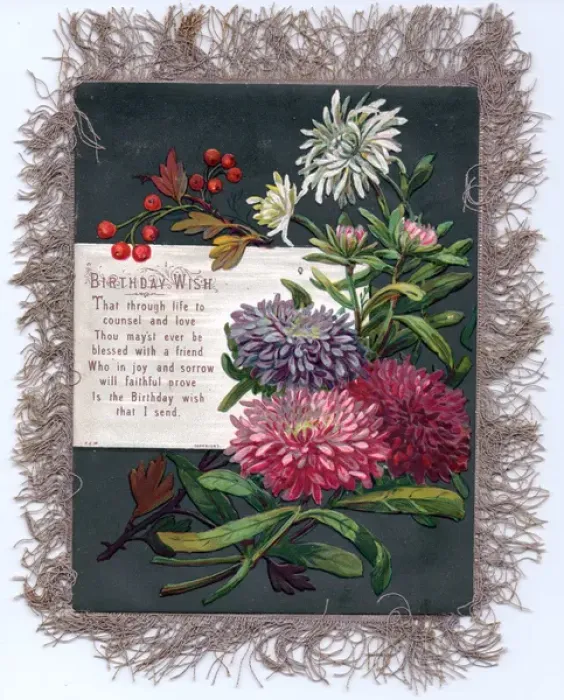 BIRTHDAY WISH.
That through life to
counsel and love
Thou may'st ever be
blessed with a friend
Who in joy and sorrow
will faithful prove
Is the Birthday wish
that I send.